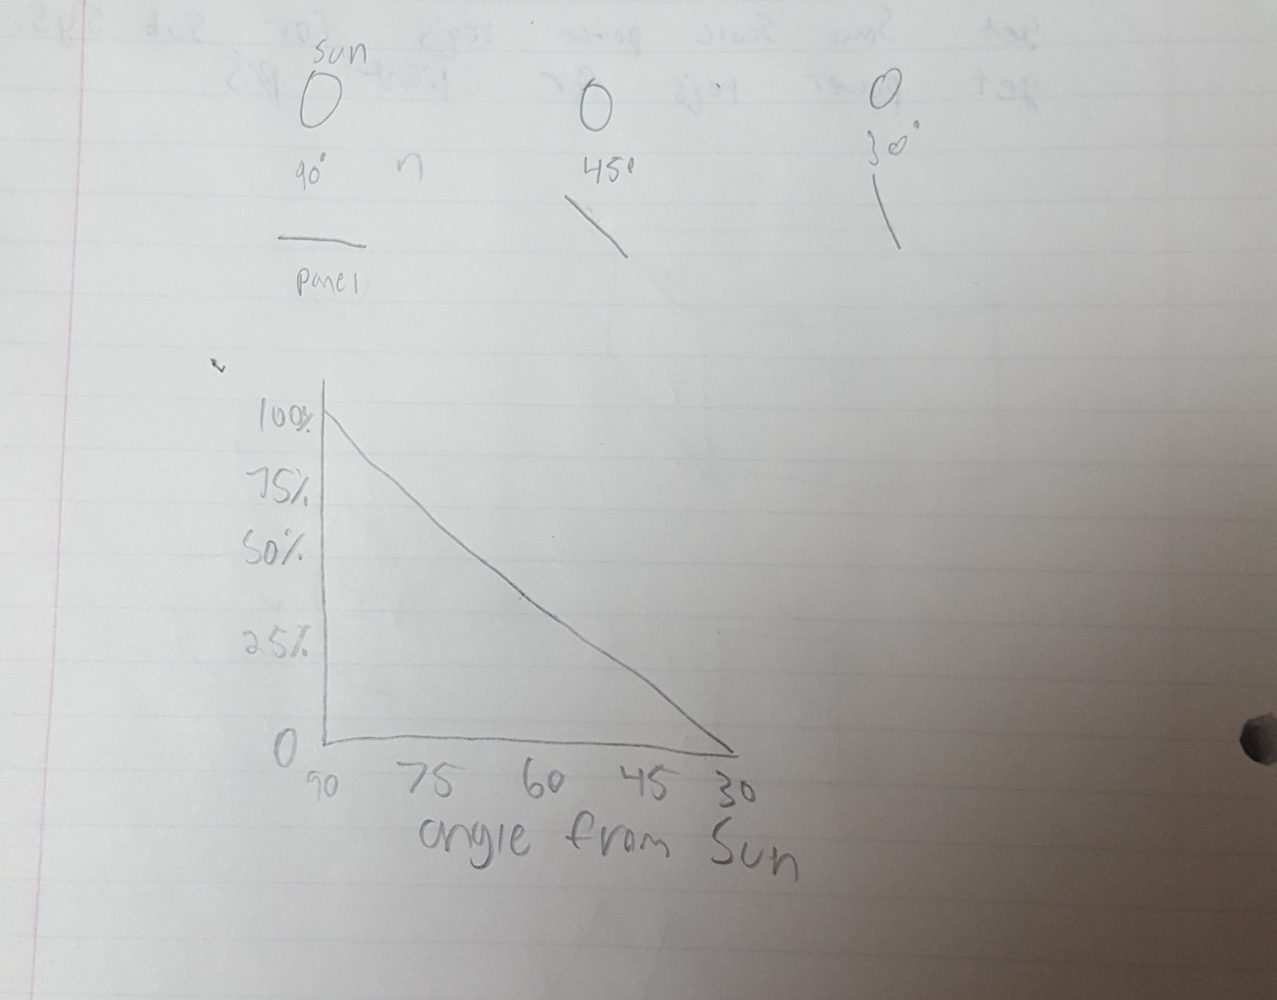 sun
90° n 45° 30°
panel
100%
75%
50%
25%
0
90 75 60 45 30
angle from Sun